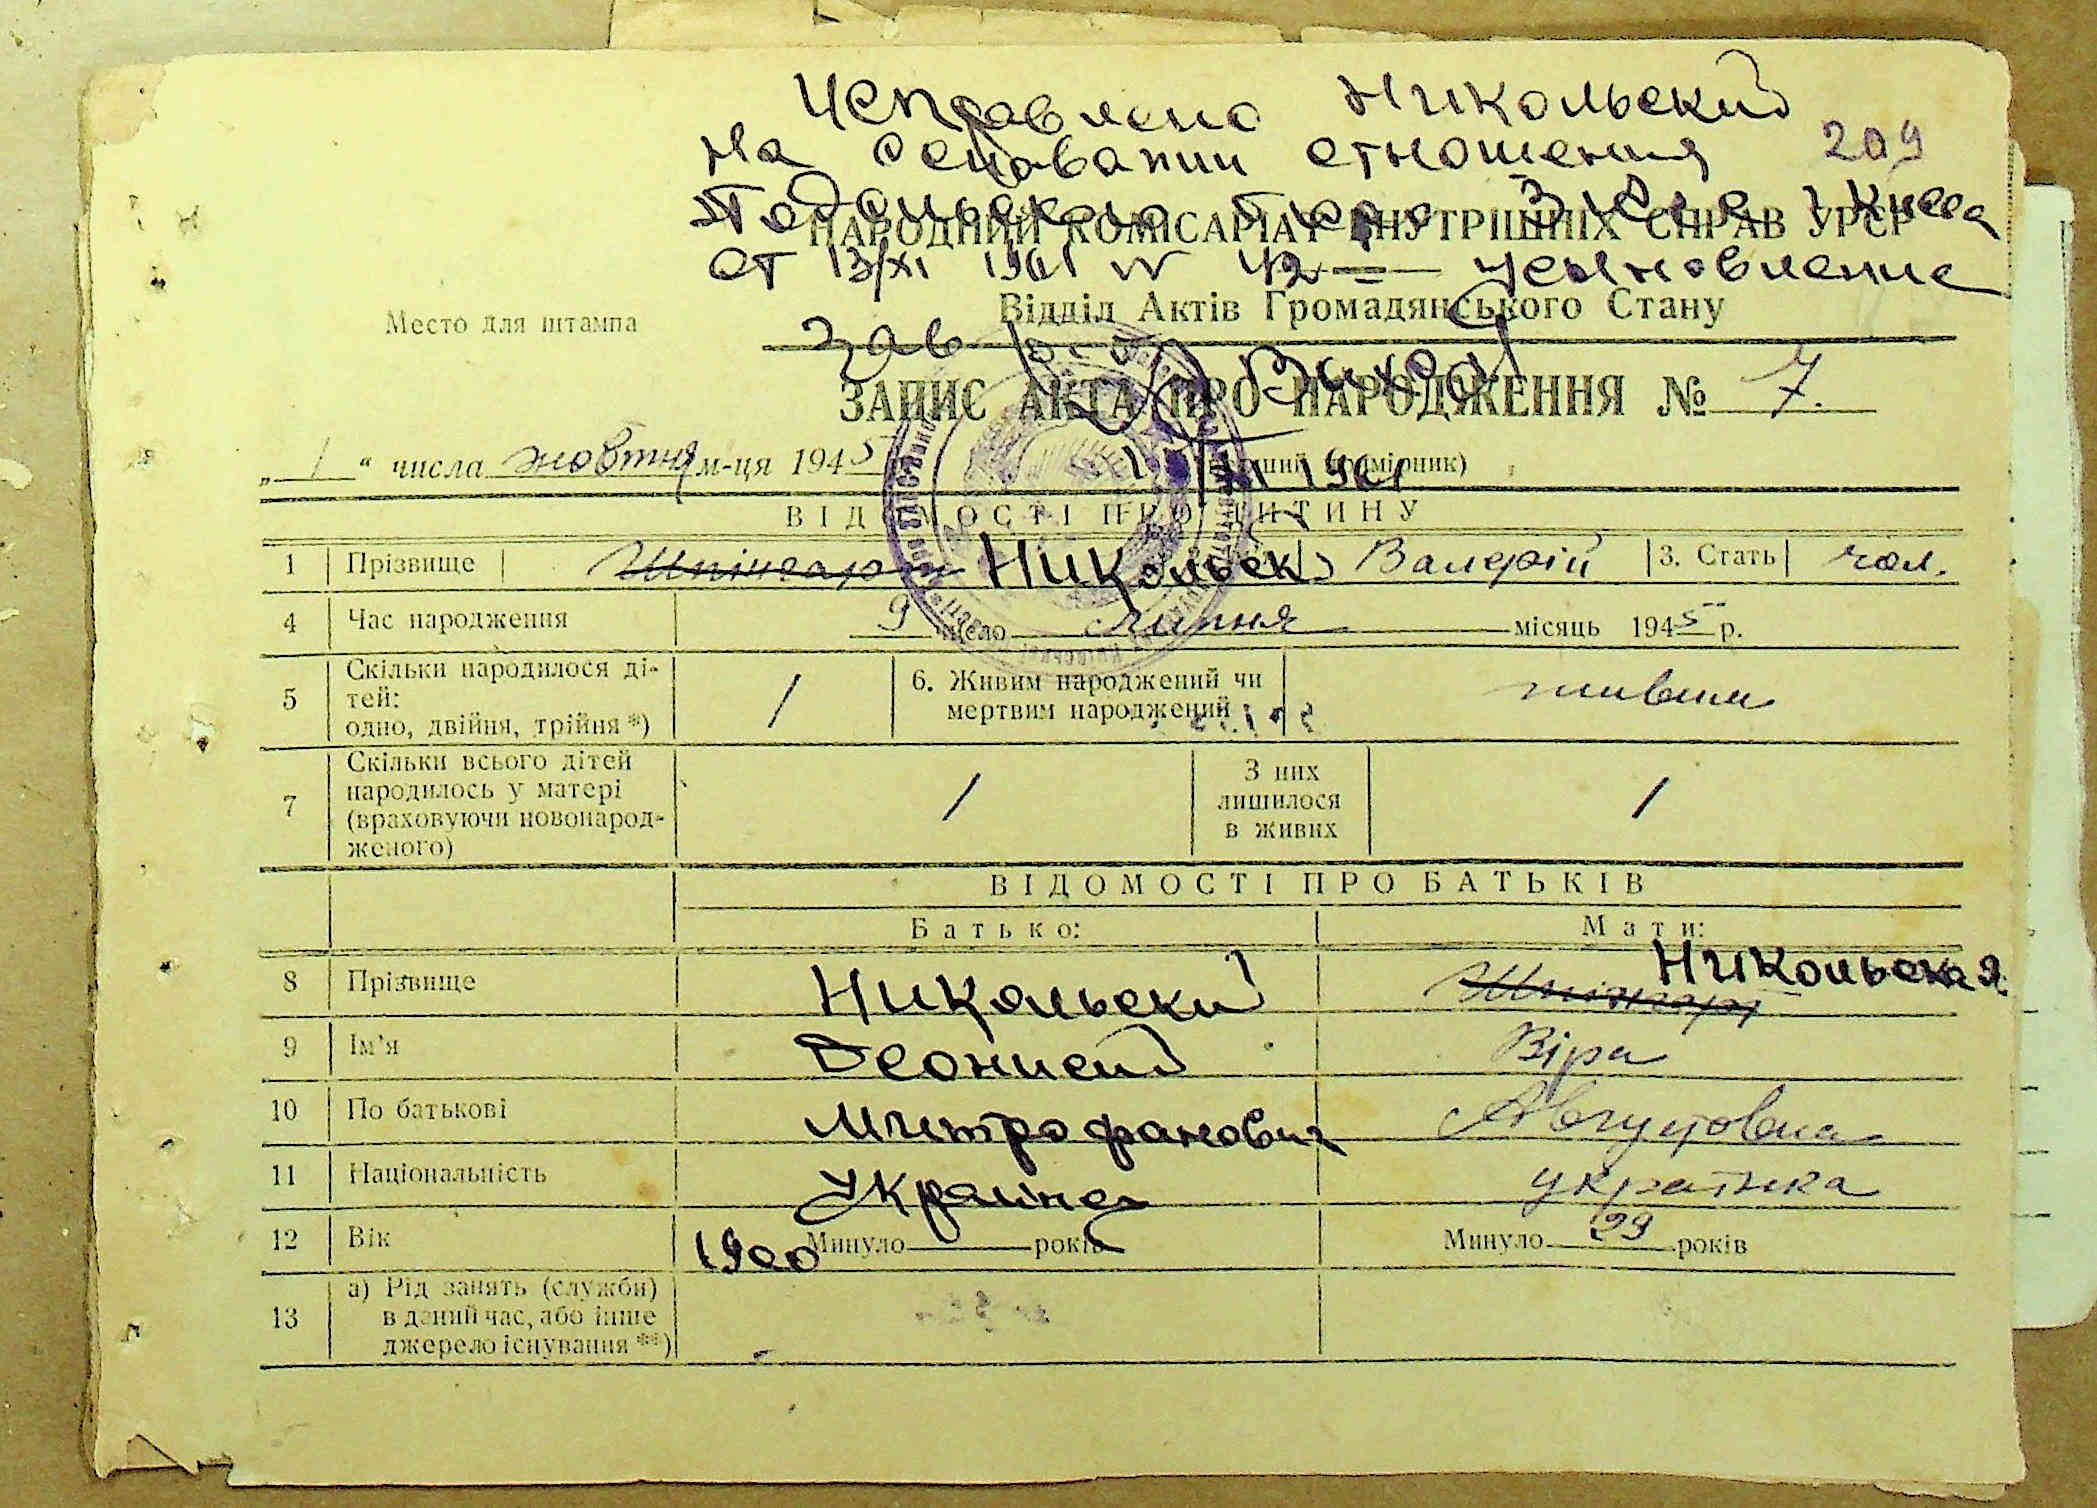 Исправлено Никольский
На основании отношения 209
Подольского бюро ЗАГС г. Киева
НАРОДНИЙ КОМІСАРІАТ ВНУТРІШНІХ СПРАВ УРСР
от 13/XI 1961 N 42 усыновление
Відділ Актів Громадянського Стану
Место для штампа
Зав
ЗАПИС АКТА ПРО НАРОДЖЕННЯ № 7.
„ 1 “ числа жовтня м-ця 1945
(перший примірник)
XI 1961
ВІДОМОСТІ ПРО ДИТИНУ
1 Прізвище Никольск Валерій 3. Стать чол.
4 Час народження 9 число липня місяць 1945 р.
5 Скільки народилося ді-
тей:
одно, двійня, трійня *) 1 6. Живим народжений чи
мертвим народжений живим
7 Скільки всього дітей
народилось у матері
(враховуючи новонарод-
женого) 1 З них
лишилося
в живих 1
ВІДОМОСТІ ПРО БАТЬКІВ
Батько: Мати:
8 Прізвище Никольский Никольская
9 Ім'я Деонисий Віра
10 По батькові Митрофанович Августовна
11 Національність Украінец українка
12 Вік 1900 Минуло років Минуло 29 років
13 а) Рід занять (служби)
в даний час, або інше
джерело існування **)